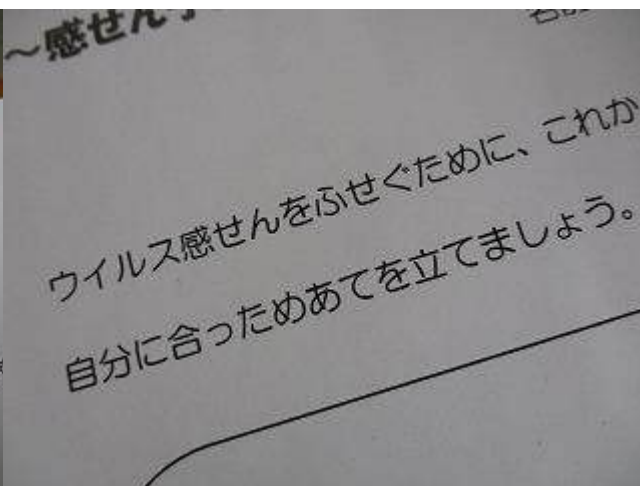 ～感せん
ウイルス感せんをふせぐために、これか
自分に合っためあてを立てましょう。